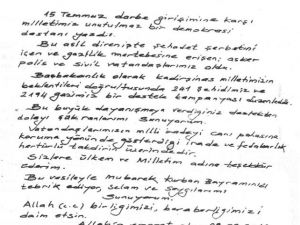 15 Temmuz darbe girişimine karşı
milletimiz unutulmaz bir demokrasi
destanı yazdı.
Bu asil direnişte şehadet şerbetini
içen ve gazilik mertebesine erişen; asker
polis ve sivil vatandaşlarımız oldu.
Başbakanlık olarak kadirşinas milletimizin
beklentileri doğrultusunda 241 şehidimiz ve
2194 gazimiz için destek kampanyası düzenledik.
Bu büyük dayanışmaya verdiğiniz destekten
dolayı şükranlarımı sunuyorum.
Vatandaşlarımızın milli iradeyi canı pahasına
koruma yönünde gösterdiği irade ve fedakarlık
hertürlü takdirin üzerindedir.
Sizlere ülkem ve Milletim adına teşekkür
ederim.
Bu vesileyle mübarek Kurban Bayramınızı
tebrik ediyor, selam ve saygılarımı
Sunuyorum.
Allah (c.c) birliğimizi, beraberliğimizi
daim etsin.